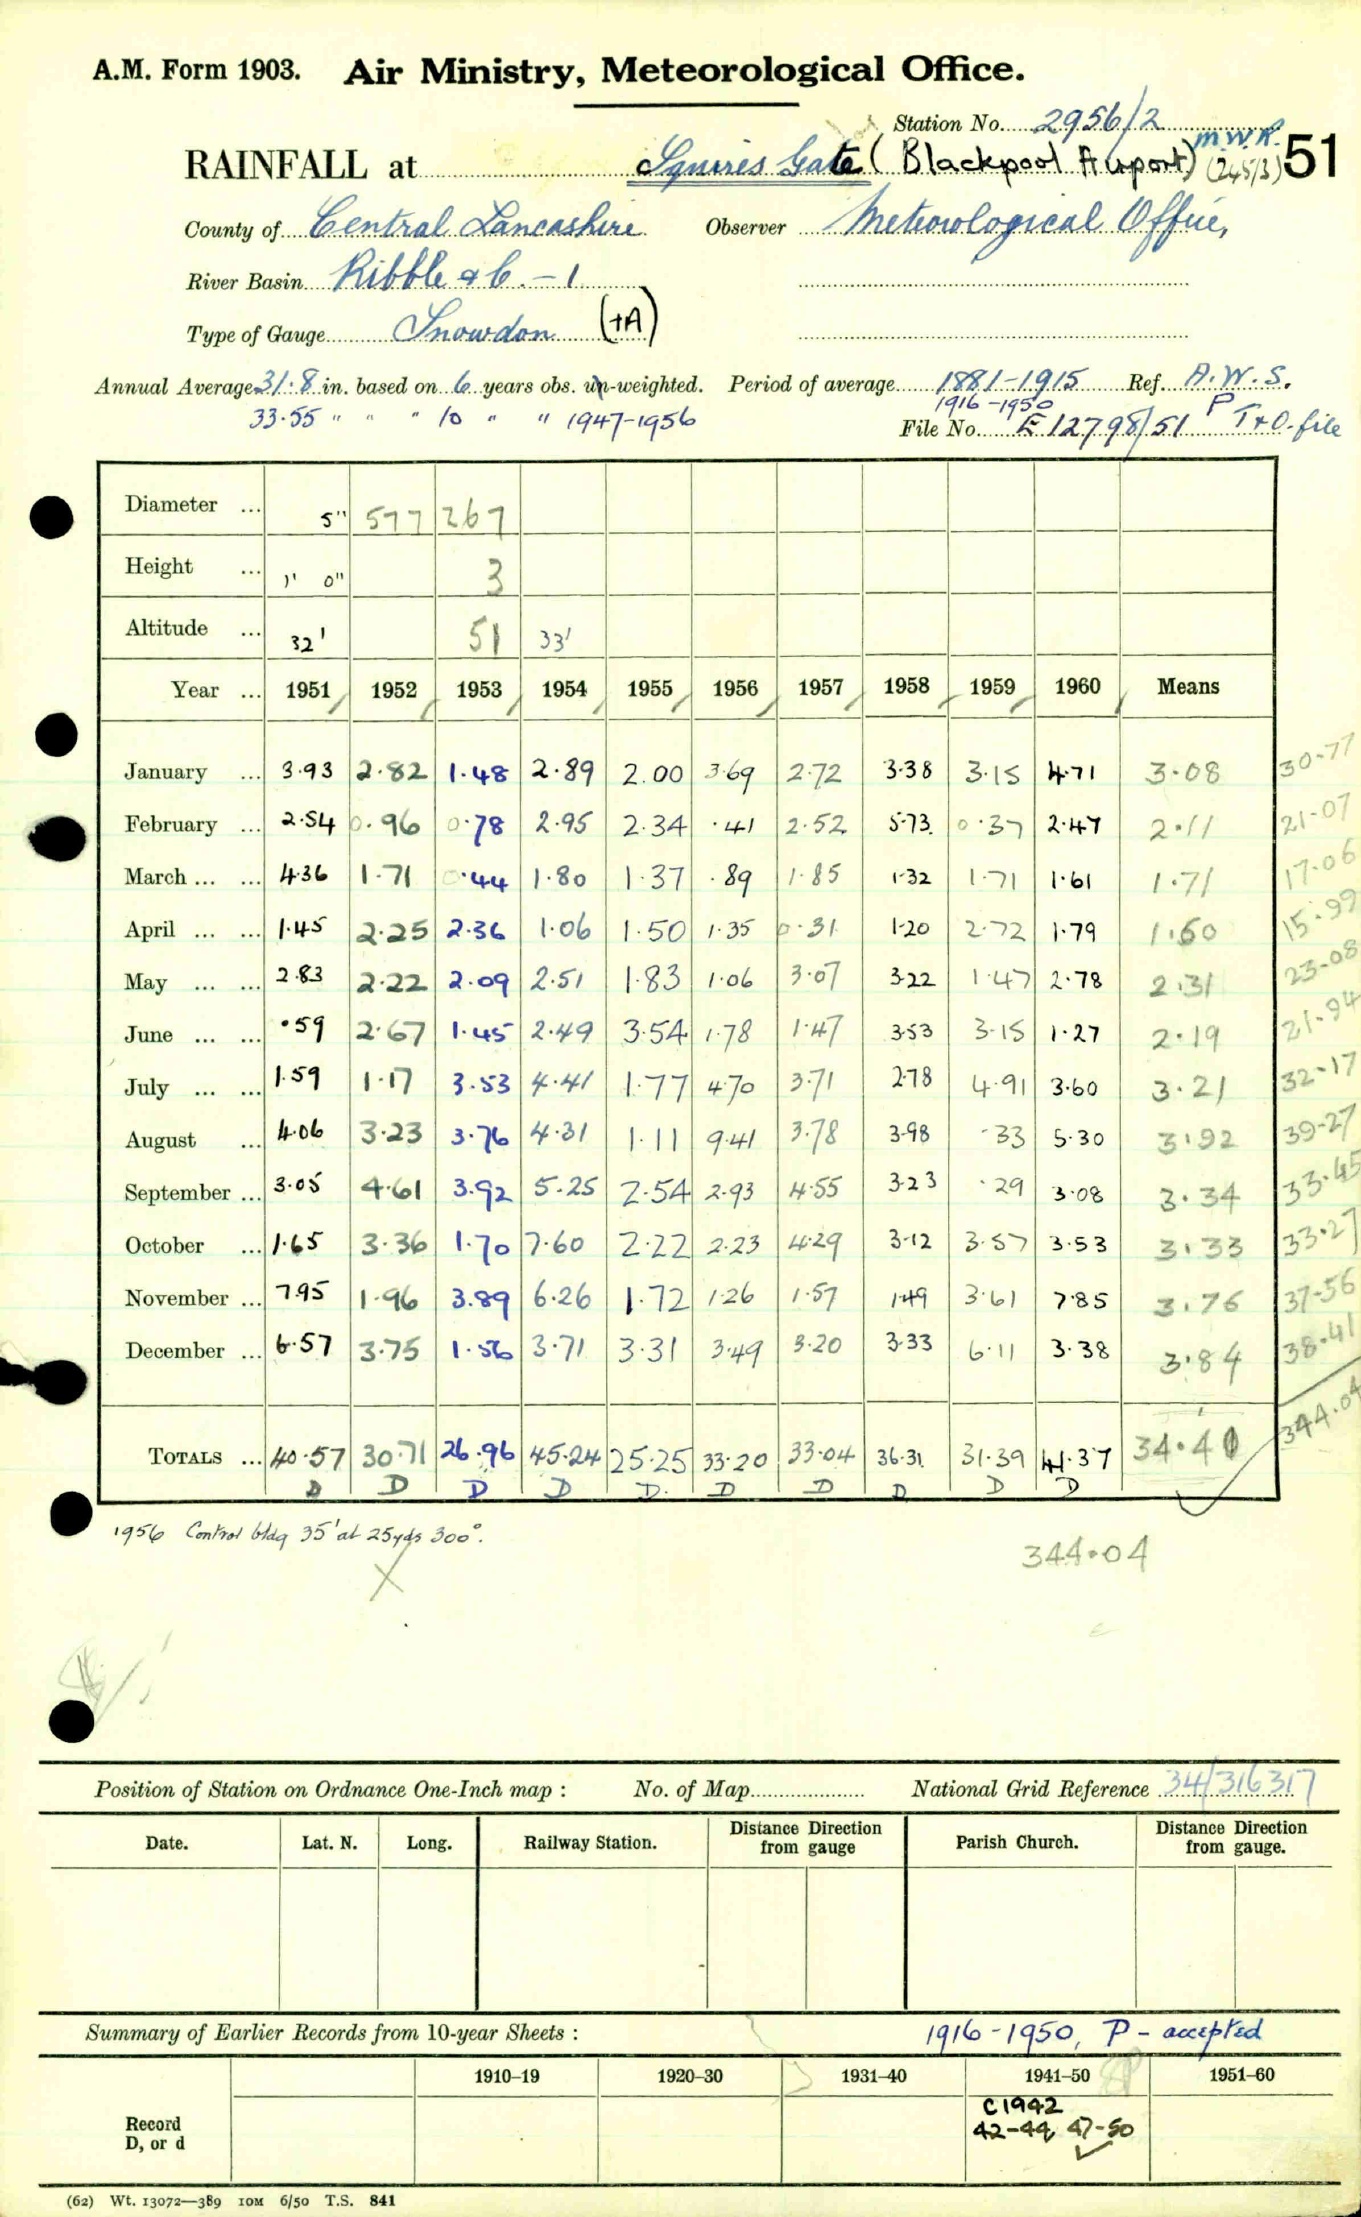 A.M. Form 1903. Air Ministry, Meteorological Office.
Station No. 2956/2
M.W.R.
RAINFALL at Squires Gate (Blackpool Airport) (245/3) 51
County of Central Lancashire Observer Meteorological Office,
River Basin Ribble &c. - 1
Type of Gauge Snowdon (+A)
Annual Average 31.8 in. based on 6 years obs. un-weighted. Period of average 1881-1915 Ref. A.W.S.
33.55 " " " 10 " " 1947-1956
1916-1950 P
File No. E 12798/51 T+O. file
Diameter ... 5" 577 267
Height ... 1' 0" 3
Altitude ... 32' 51 33'
Year ... 1951 1952 1953 1954 1955 1956 1957 1958 1959 1960 Means
January ... 3.93 2.82 1.48 2.89 2.00 3.69 2.72 3.38 3.15 4.71 3.08 30-77
February ... 2.54 0.96 0.78 2.95 2.34 .41 2.52 5.73 0.37 2.47 2.11 21-07
March ... ... 4.36 1.71 0.44 1.80 1.37 .89 1.85 1.32 1.71 1.61 1.71 17-06
April ... ... 1.45 2.25 2.36 1.06 1.50 1.35 0.31 1.20 2.72 1.79 1.60 15.99
May ... ... 2.83 2.22 2.09 2.51 1.83 1.06 3.07 3.22 1.47 2.78 2.31 23-08
June ... ... .59 2.67 1.45 2.49 3.54 1.78 1.47 3.53 3.15 1.27 2.19 21-94
July ... ... 1.59 1.17 3.53 4.41 1.77 4.70 3.71 2.78 4.91 3.60 3.21 32-17
August ... 4.06 3.23 3.76 4.31 1.11 9.41 3.78 3.98 .33 5.30 3.92 39-27
September ... 3.05 4.61 3.92 5.25 2.54 2.93 4.55 3.23 .29 3.08 3.34 33.45
October ... 1.65 3.36 1.70 7.60 2.22 2.23 4.29 3.12 3.57 3.53 3.33 33.27
November ... 7.95 1.96 3.89 6.26 1.72 1.26 1.57 1.49 3.61 7.85 3.76 37-56
December ... 6.57 3.75 1.56 3.71 3.31 3.49 3.20 3.33 6.11 3.38 3.84 38.41
TOTALS ... 40.57 30.71 26.96 45.24 25.25 33.20 33.04 36.31 31.39 41.37 34.40 344.04
D D D D D. D D D D D
1956 Control bldg 35' at 25yds 300°.
344.04
Position of Station on Ordnance One-Inch map : No. of Map National Grid Reference 34/316317
Date. Lat. N. Long. Railway Station. Distance Direction from gauge Parish Church. Distance Direction from gauge.
Summary of Earlier Records from 10-year Sheets : 1916-1950, P - accepted
1910-19 1920-30 1931-40 1941-50 1951-60
Record
D, or d
C1942
42-44, 47-50
(62) Wt. 13072—389 10M 6/50 T.S. 841